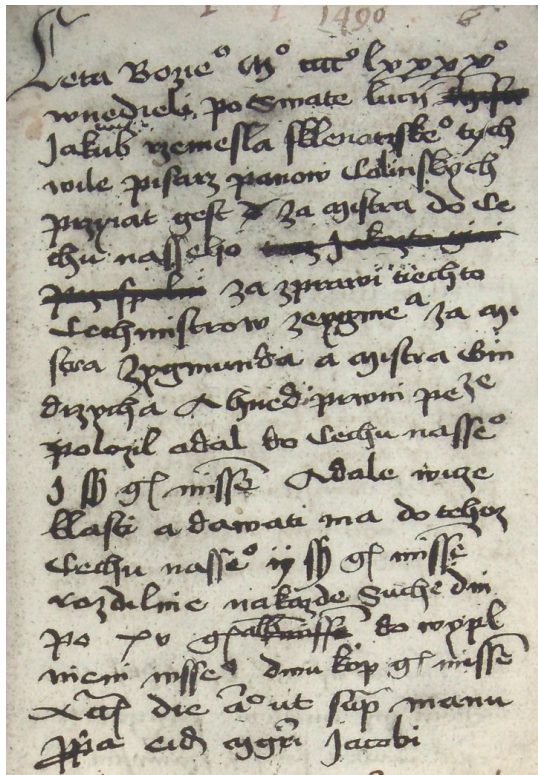 1490
Leta Bozie° M° cccc° lxxxx°
wnedieli po Swate lucii
Jakub rzemesla sklenarzske° tych
wile pisarz panow Colinskych
przyiat gest za mistra do Ce
chu nasseho
za zprawi tiechto
Cechmistrow zeygme a za mi
stra Zygmunda a mistra Gin
drzycha A hned prwni peze
polozil a dal do Cechu nasse°
J ss gr missē A dale wize
klasti a dawati ma do tehoz
Cechu nasse° ij ss gr missē
rozdilnie na kazde Suche dni
po xv gr do wypl
nieni wsse° dwu kop gr missē
die a° ut sup manu
ppa eid mgri Jacobi